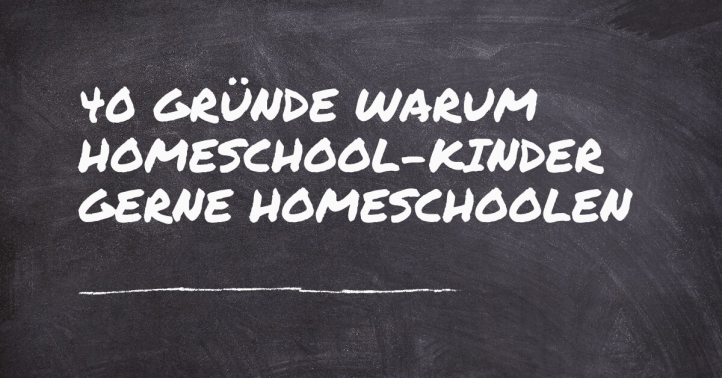 40 GRÜNDE WARUM
HOMESCHOOL-KINDER
GERNE HOMESCHOOLEN